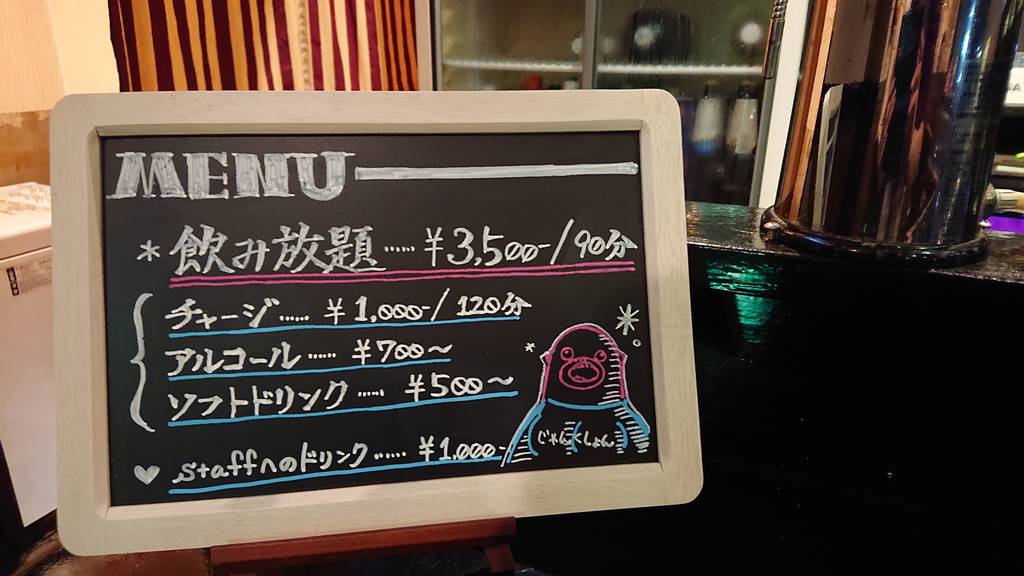 MENU
*飲み放題……¥3,500-/90分
チャージ……¥1,000-/120分
アルコール……¥700〜
ソフトドリンク……¥500〜
じゃんくしょん
♥staffへのドリンク……¥1,000-